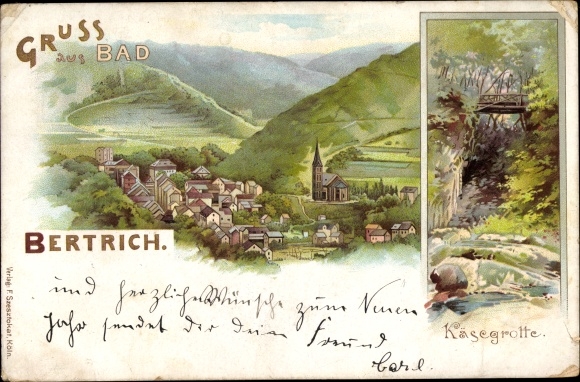 GRUSS
aus BAD
BERTRICH.
Käsegrotte.
Verlag: F. Szesztokat, Köln.
und herzliche Wünsche zum Neuen
Jahr sendet dir dein Freund
Carl.